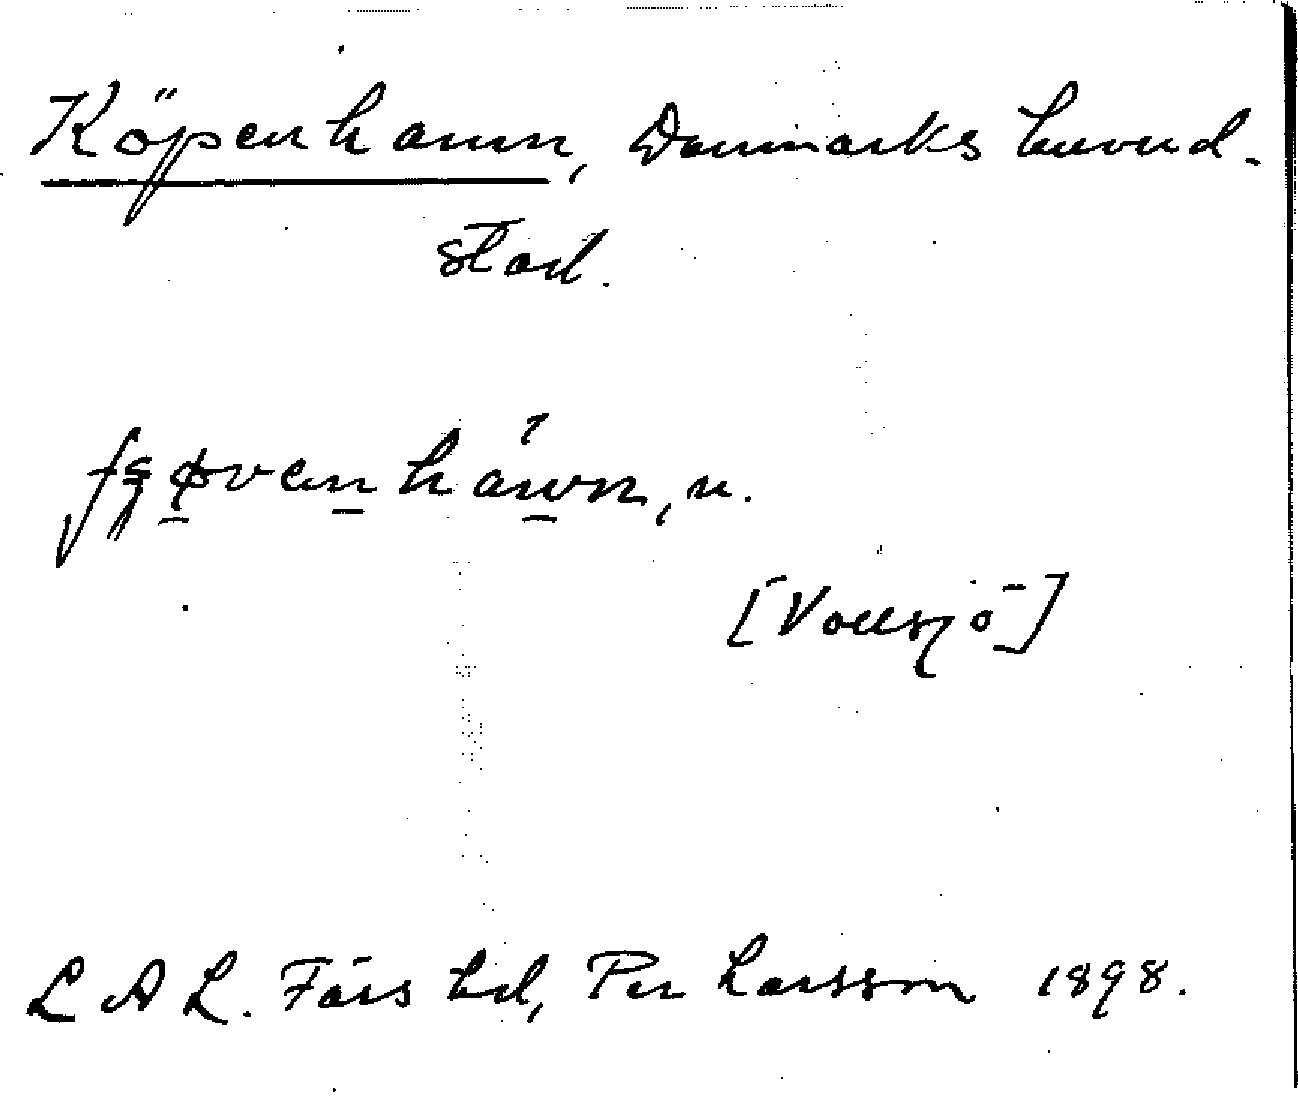 Köpenhamn, Danmarks huvud-
stad.
fʂøvenhawn, n.
[Vollsjö]
L A L. Färs hd, Per Larsson 1898.